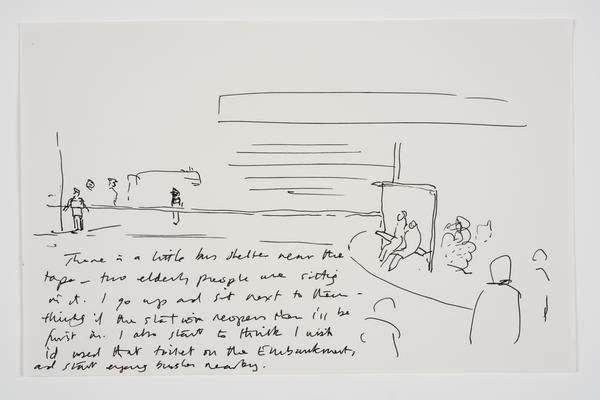 There is a little bus shelter near the
tape – two elderly people are sitting
in it. I go up and sit next to them –
thinking if the station reopens then i'll be
first in. I also start to think I wish
i'd used that toilet on the Embankment,
and start eyeing bushes nearby.